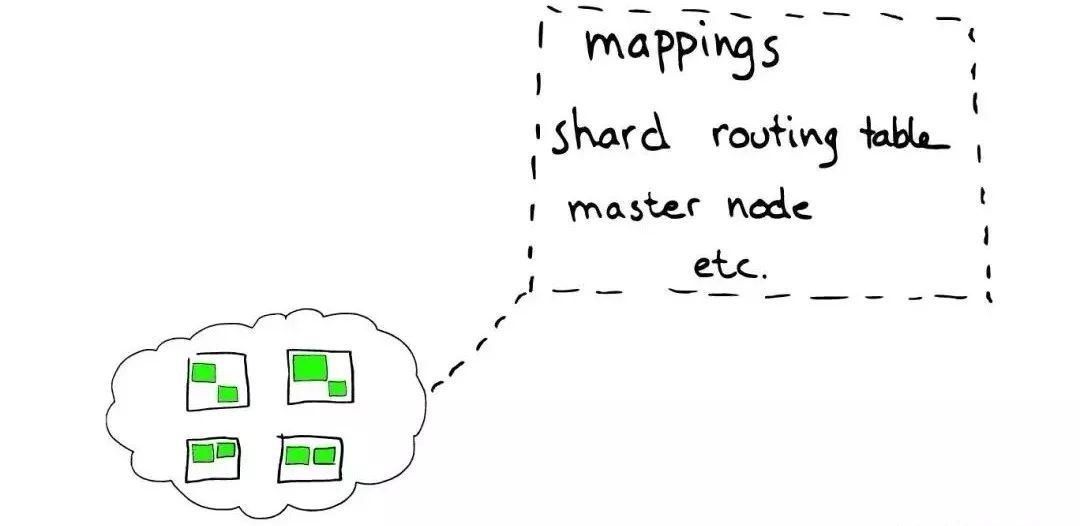 mappings
shard routing table
master node
etc.